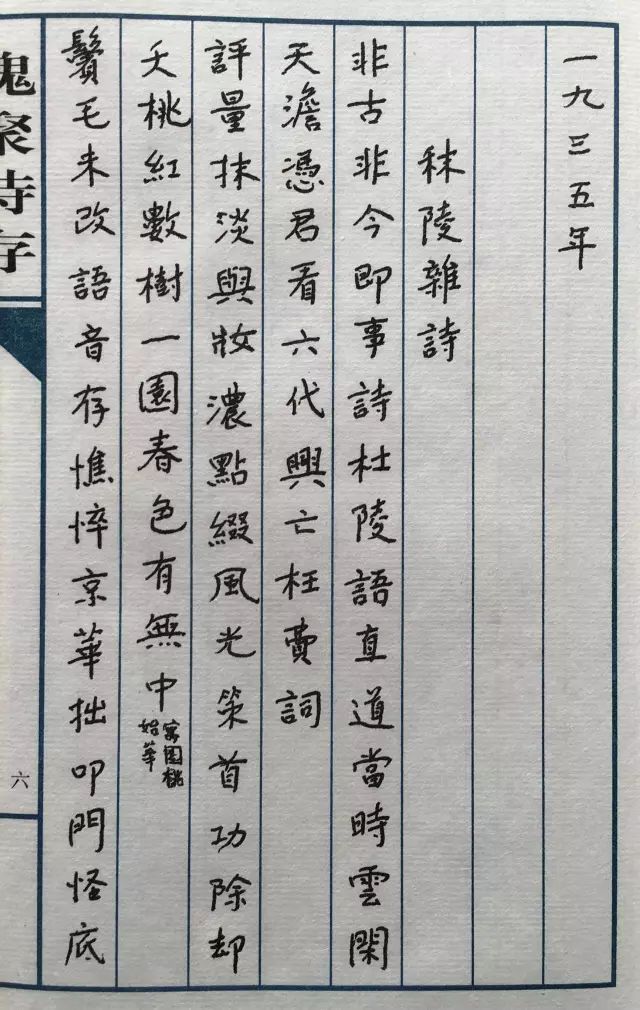 一九三五年
秣陵雜詩
非古非今即事詩杜陵語直道當時雲閑
天澹憑君看六代興亡枉費詞
評量抹淡與妝濃點綴風光策首功除却
夭桃紅數樹一園春色有無中
寓園桃
始華
鬢毛未改語音存憔悴京華拙叩門怪底
槐聚詩存
六